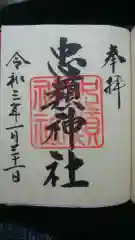 奉拝
忠頼神社
令和三年一月二十三日